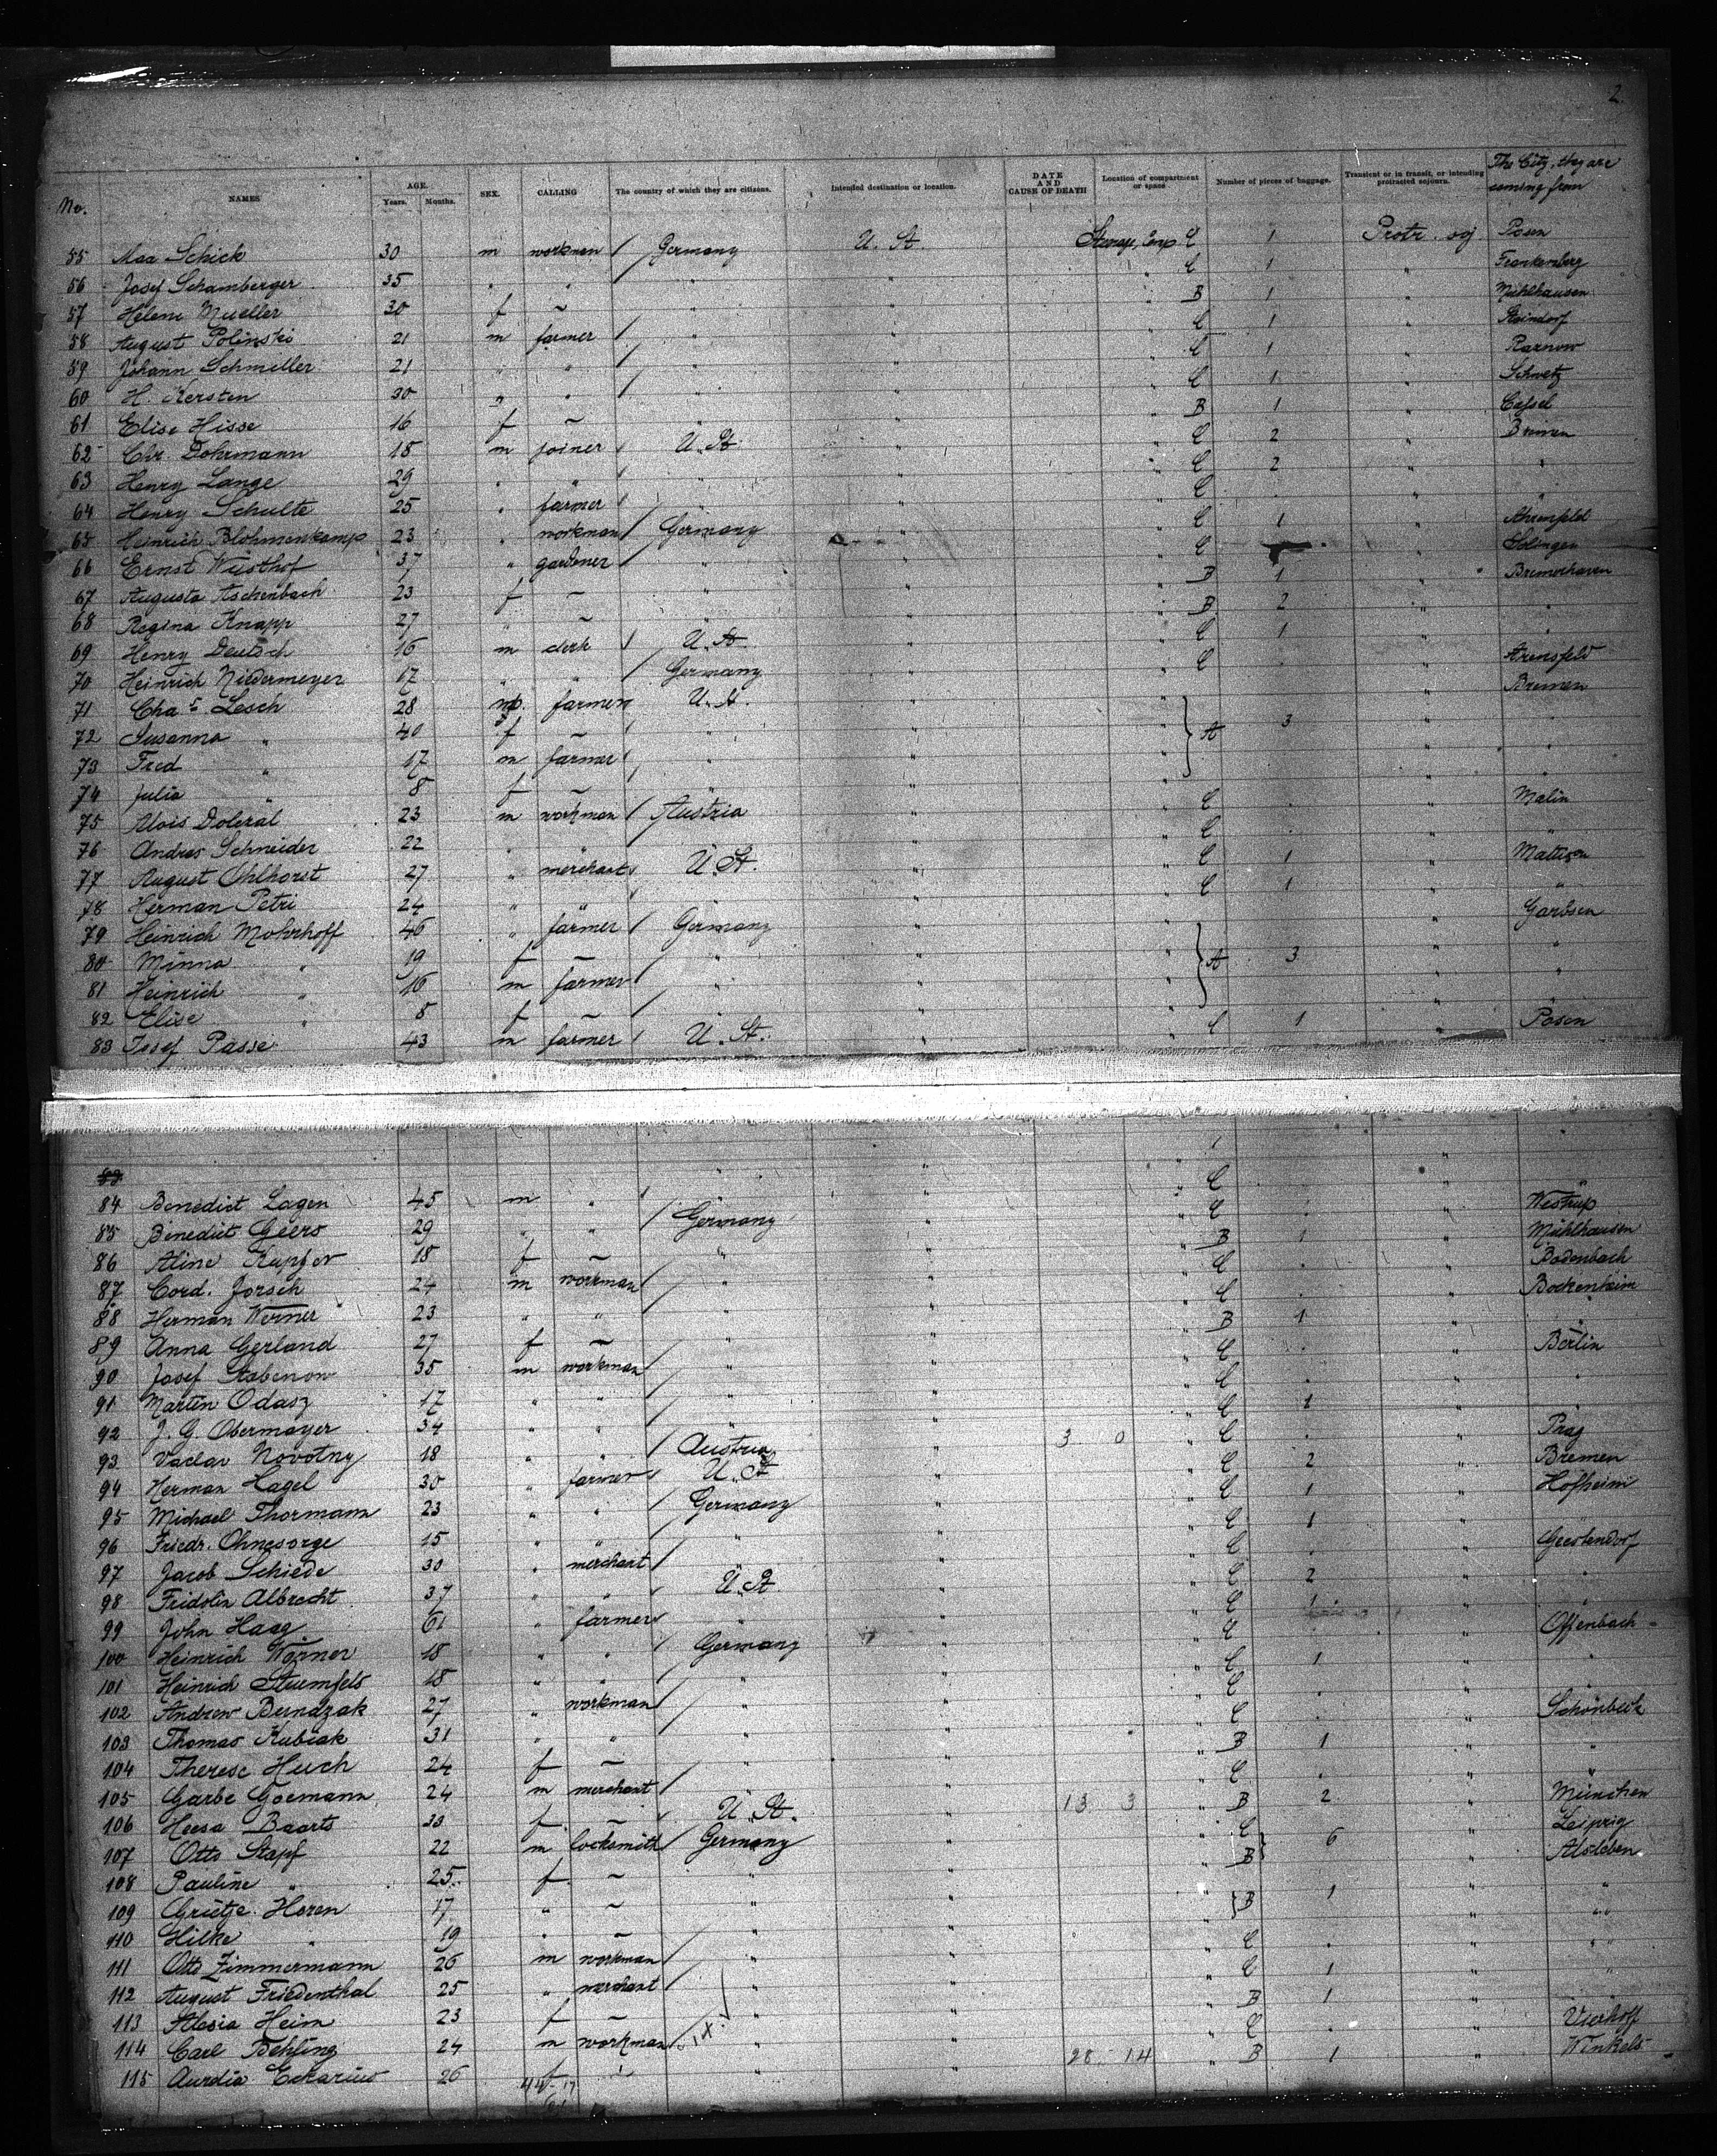 2.
No. NAMES AGE. Years. Months. SEX. CALLING The country of which they are citizens. Intended destination or location. DATE AND CAUSE OF DEATH Location of compartment or space Number of pieces of baggage. Transient or, in transit, or intending protracted sojourn. The City, they are coming from
55 Max Schick 30 m workman / Germany U. St. Steerage, Comp C 1 Protr. soj Posen
56 Josef Schamberger 35 " " / " " " C 1 " Frankenberg
57 Helene Mueller 30 f — " " " B 1 " Mühlhausen
58 August Polinski 21 m farmer / " " " C 1 " Steindorf
59 Johann Schmeller 21 " " / " " " C 1 "
60 H. Kersten 30 " " / " " " C 1 " Schwetz
61 Elise Hisse 16 f — " " " B 1 " Cassel
62 Chr. Dohrmann 18 m joiner / U. St. " " C 2 " Bremen
63 Henry Lange 29 " " / " " " C 2 " "
64 Henry Schulte 25 " farmer / " " " C " "
65 Heinrich Blohmenkamp 23 " workman / Germany " " C 1 " Ahrenfeld
66 Ernst Wüsthof 37 " gardener / " " " C " Solingen
67 Augusta Aschenbach 23 f — " " " B 1 " Bremerhaven
68 Regina Knapp 27 " — " " " B 2 " "
69 Henry Deutsch 16 m clerk / U. St. " " C 1 " "
70 Heinrich Niedermeyer 17 " " / Germany " " C . " Arensfeld
71 Chas. Lesch 28 m farmer U. St. " " A 3 " Bremen
72 Susanna " 40 f — " " " " "
73 Fred " 17 m farmer / " " " " "
74 Julia " 8 f — " " " " "
75 Alois Doleral 23 m workman / Austria " " C . " Malin
76 Andres Schneider 22 " " / " " " C . " "
77 August Ohlhorst 27 " merchant / U. St. " " C 1 "
78 Herman Petri 24 " " / " " " C 1 " "
79 Heinrich Mohrhoff 46 " farmer / Germany " " A 3 " Garbsen
80 Minna " 19 f — " " " " "
81 Heinrich " 16 m farmer / " " " " "
82 Elise " 8 f — " " " "
83 Josef Passe 43 m farmer / U. St. " " C 1 " Posen
83
84 Benedict Lagen 45 m " / " " " C " "
85 Benedict Geers 29 " " / Germany " " C . " Westrup
86 Aline Kupfer 18 f — " " " B 1 " Mühlhausen
87 Cord. Jorsch 24 m workman / " " " C . " Bodenbach
88 Herman Werner 23 " " / " " " C . " Bockenheim
89 Anna Gerland 27 f — " " " B 1 " "
90 Josef Stabenow 35 m workman / " " " C . " Berlin
91 Martin Odasz 17 " " / " " " C . " "
92 J. G. Obermayer 34 " " / " " " C 1 " "
93 Vaclav Novotny 18 " " / Austria " 3 0 " C . " Prag
94 Herman Hagel 30 " farmer / U. St " " C 2 " Bremen
95 Michael Thormann 23 " " / Germany " " C 1 " Hofheim
96 Friedr. Ohnesorge 15 " " / " " " C 1 " "
97 Jacob Schiede 30 " merchant / " " " C . " Geestendorf
98 Fridolin Albrecht 37 " " / U. St " " C 2 " "
99 John Haag 61 " farmer / " " " C 1 " "
100 Heinrich Wörner 18 " " / Germany " " C " Offenbach
101 Heinrich Stuemfels 18 " " / " " " C 1 " "
102 Andrew Berndzak 27 " workman / " " " C . "
103 Thomas Kubiak 31 " " / " " " C . " Schönbeck
104 Therese Huch 24 f — " " " B 1 " "
105 Garbe Goemann 24 m merchant / " " " C . " "
106 Heesa Baarts 30 f — U. St. " 13 3 " B 2 " München
107 Otto Stapf 22 m locksmith / Germany " " C 6 " Leipzig
108 Pauline " 25 f — " " " B " Alsleben
109 Grietje Horen 17 " — " " " B 1 " "
110 Hilke " 19 " — " " " "
111 Otto Zimmermann 26 m workman / " " " C . " "
112 August Friedenthal 25 " merchant / " " " C 1 " "
113 Alesia Heim 23 f — " " " B 1 "
114 Carl Behling 24 m workman / " " " C . " Vierhoff
115 Aurelia Eckarius 26 f — " " 28 14 " B 1 " Winkels
44 17